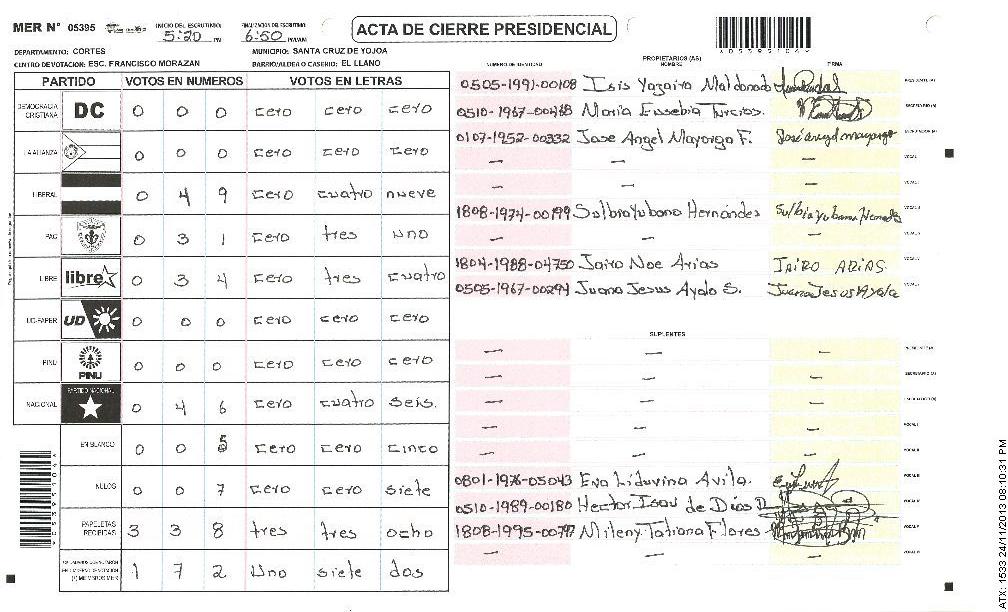 MER N° 05395
INICIO DEL ESCRUTINIO: 5:20 PM
FINALIZACION DEL ESCRUTINIO: 6:50 PM/AM
ACTA DE CIERRE PRESIDENCIAL
DEPARTAMENTO: CORTES
MUNICIPIO: SANTA CRUZ DE YOJOA
CENTRO DE VOTACION: ESC. FRANCISCO MORAZAN
BARRIO/ALDEA O CASERIO: EL LLANO
PARTIDO VOTOS EN NUMEROS VOTOS EN LETRAS
DEMOCRACIA CRISTIANA DC 0 0 0 cero cero cero
LA ALIANZA 0 0 0 cero cero cero
LIBERAL 0 4 9 cero cuatro nueve
PAC 0 3 1 cero tres uno
LIBRE libre 0 3 4 cero tres cuatro
UD-FAPER UD 0 0 0 cero cero cero
PINU PINU 0 0 0 cero cero cero
NACIONAL PARTIDO NACIONAL 0 4 6 cero cuatro seis.
EN BLANCO 0 0 5 cero cero cinco
NULOS 0 0 7 cero cero siete
PAPELETAS RECIBIDAS 3 3 8 tres tres ocho
(+) MIEMBROS MER 1 7 2 Uno siete dos
PROPIETARIOS (AS)
NUMERO DE IDENTIDAD NOMBRE FIRMA
0505-1991-00108 Isis Yazaira Maldonado PRESIDENTE (A)
0510-1967-00468 Maria Eusebia Turcios. SECRETARIO (A)
0107-1952-00332 Jose Angel Mayorga F. José angel mayorga ESCRUTADOR (A)
— — — VOCAL I
— — — VOCAL II
1808-1974-00199 Sulbia Yubana Hernández VOCAL III
— — — VOCAL IV
1804-1988-04750 Jairo Noe Arias JAIRO ARIAS. VOCAL V
0505-1967-00294 Juana Jesus Ayala S. Juana Jesus Ayala
SUPLENTES
— — — PRESIDENTE (A)
— — — SECRETARIO (A)
— — — ESCRUTADOR (A)
— — — VOCAL I
— — — VOCAL II
0801-1976-05043 Eva Liduvina Avila. VOCAL III
0510-1989-00180 Hector Isau de Dios D. VOCAL IV
1808-1995-00797 Mileny Tatiana Flores VOCAL V
— — —
ATX: 1533 24/11/2013 08:10:31 PM